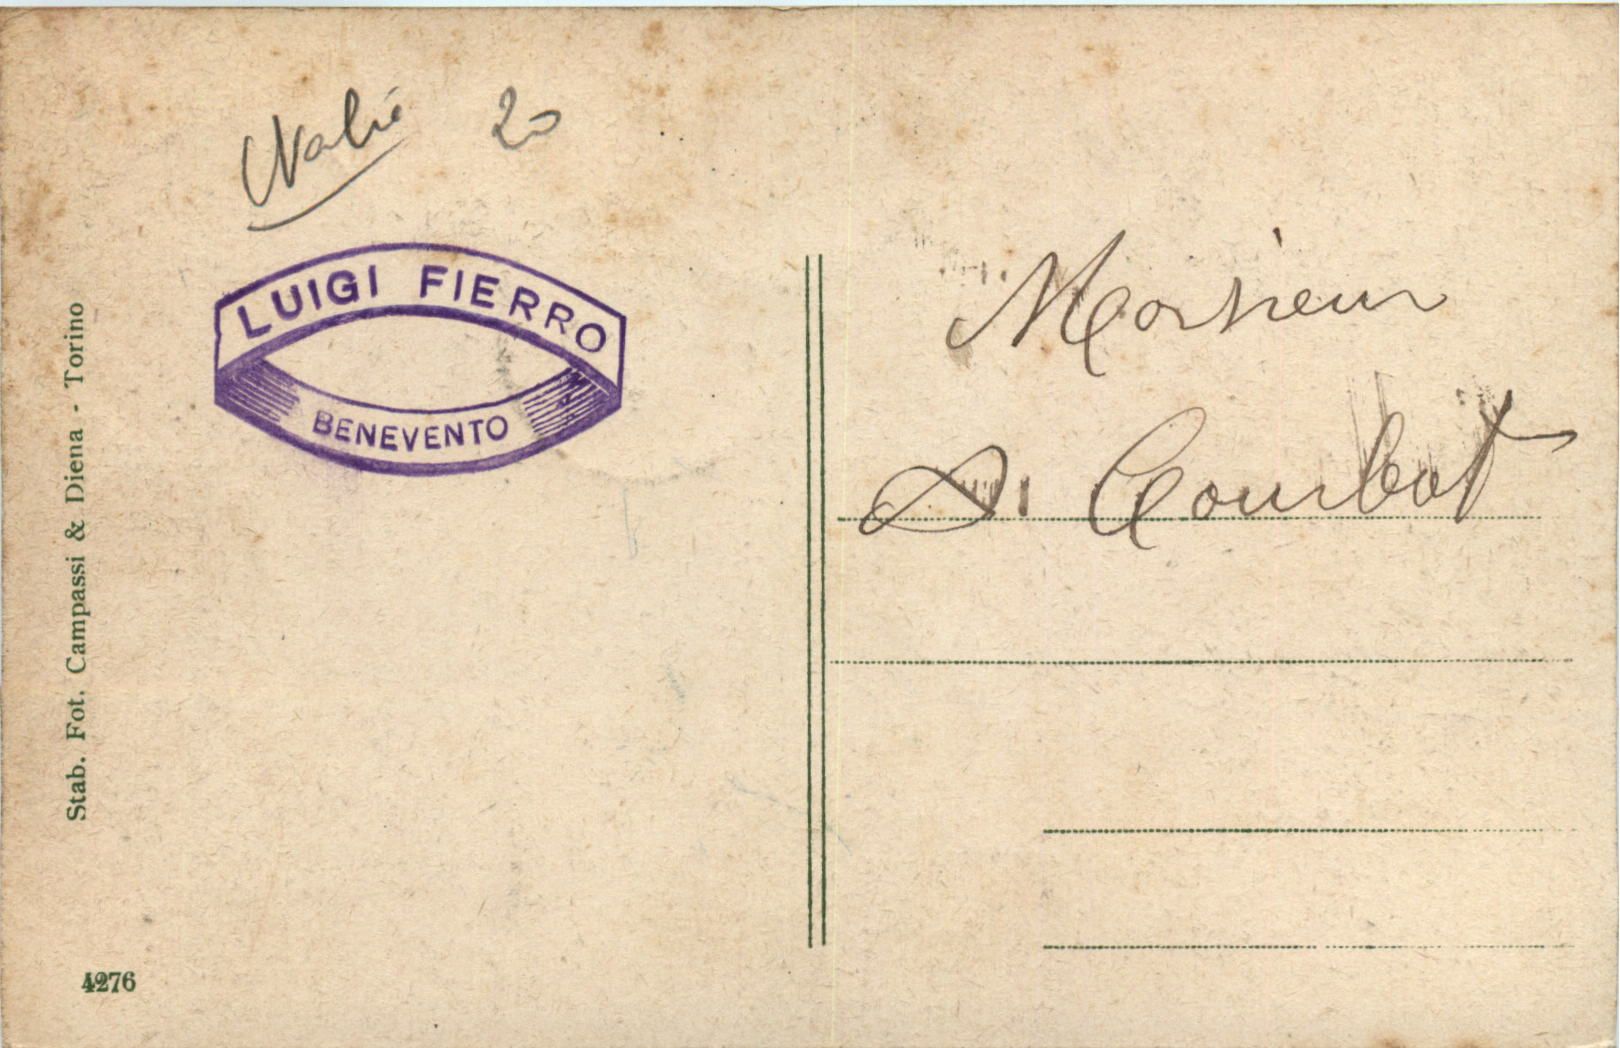 20
LUIGI FIERRO
BENEVENTO
Stab. Fot. Campassi & Diena - Torino
4276
Monsieur
D. Courbot